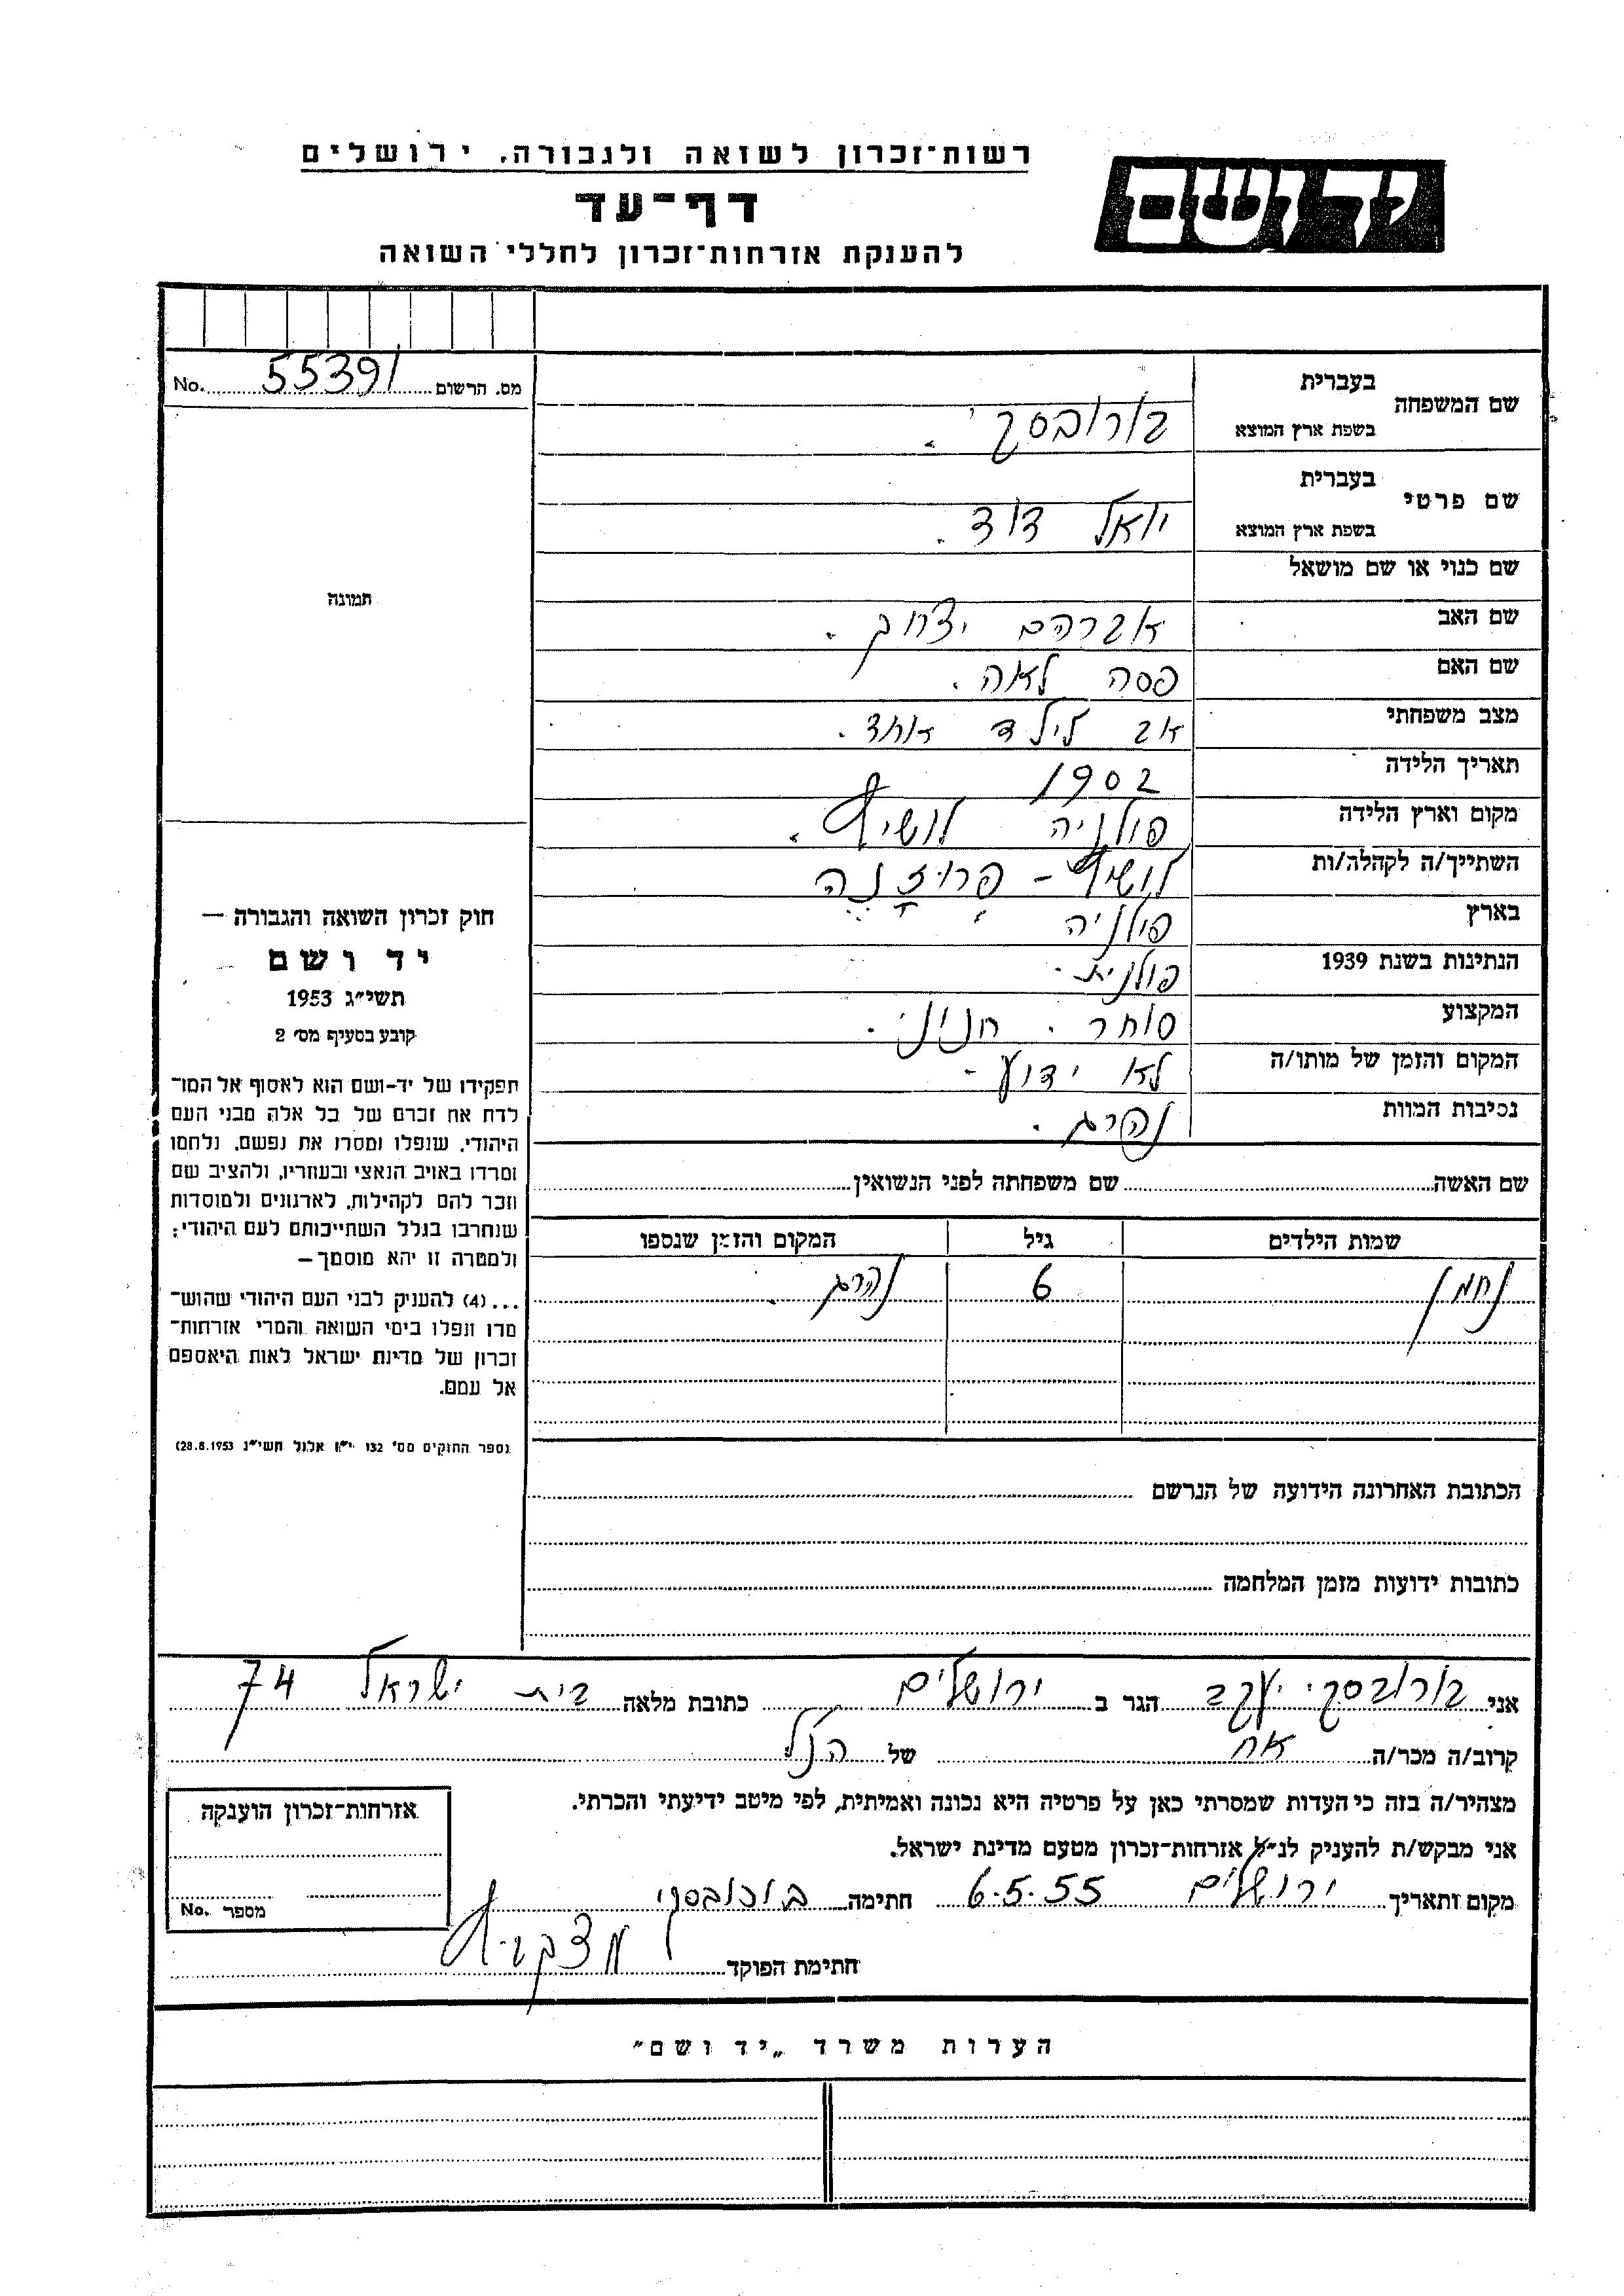 רשות־זכרון לשואה ולגבורה, ירושלים
יד ושם
דף־עד
להענקת אזרחות־זכרון לחללי השואה
מס. הרשום 55391 No.
שם המשפחה
בעברית
בשפת ארץ המוצא
בורובסקי.
שם פרטי
בעברית
בשפת ארץ המוצא
יואל דוד.
שם כנוי או שם מושאל
שם האב אברהם יצחק.
שם האם פסה לאה.
מצב משפחתי אב לילד אחד.
תאריך הלידה 1902
מקום וארץ הלידה פולניה
השתייך/ה לקהלה/ות פרוז'נה
בארץ פולניה
הנתינות בשנת 1939 פולנית.
המקצוע סוחר. חנוני.
המקום והזמן של מותו/ה לא ידוע.
נסיבות המוות נהרג.
שם האשה שם משפחתה לפני הנשואין
שמות הילדים גיל המקום והזמן שנספו
נחמן 6 נהרג.
הכתובת האחרונה הידועה של הנרשם
כתובות ידועות מזמן המלחמה
תמונה
חוק זכרון השואה והגבורה —
יד ושם
תשי״ג 1953
קובע בסעיף מס׳ 2
תפקידו של יד-ושם הוא לאסוף אל המו־
לדת את זכרם של כל אלה מבני העם
היהודי, שנפלו ומסרו את נפשם, נלחמו
ומרדו באויב הנאצי ובעוזריו, ולהציב שם
וזכר להם לקהילות, לארגונים ולמוסדות
שנחרבו בגלל השתייכותם לעם היהודי;
ולמטרה זו יהא מוסמך—
...(4) להעניק לבני העם היהודי שהוש־
מדו ונפלו בימי השואה והמרי אזרחות־
זכרון של מדינת ישראל לאות היאספם
אל עמם.
(ספר החוקים מס׳ 132 י״ז אלול תשי״ג 28.8.1953)
אני בורובסקי יעקב הגר ב ירושלים כתובת מלאה בית ישראל 74
קרוב/ה מכר/ה אח של הנ"ל
מצהיר/ה בזה כי העדות שמסרתי כאן על פרטיה היא נכונה ואמיתית, לפי מיטב ידיעתי והכרתי.
אני מבקש/ת להעניק לנ״ל אזרחות־זכרון מטעם מדינת ישראל.
מקום ותאריך ירושלים 6.5.55 חתימה בורובסקי
חתימת הפוקד
אזרחות־זכרון הוענקה
מספר No.
הערות משרד „יד ושם״